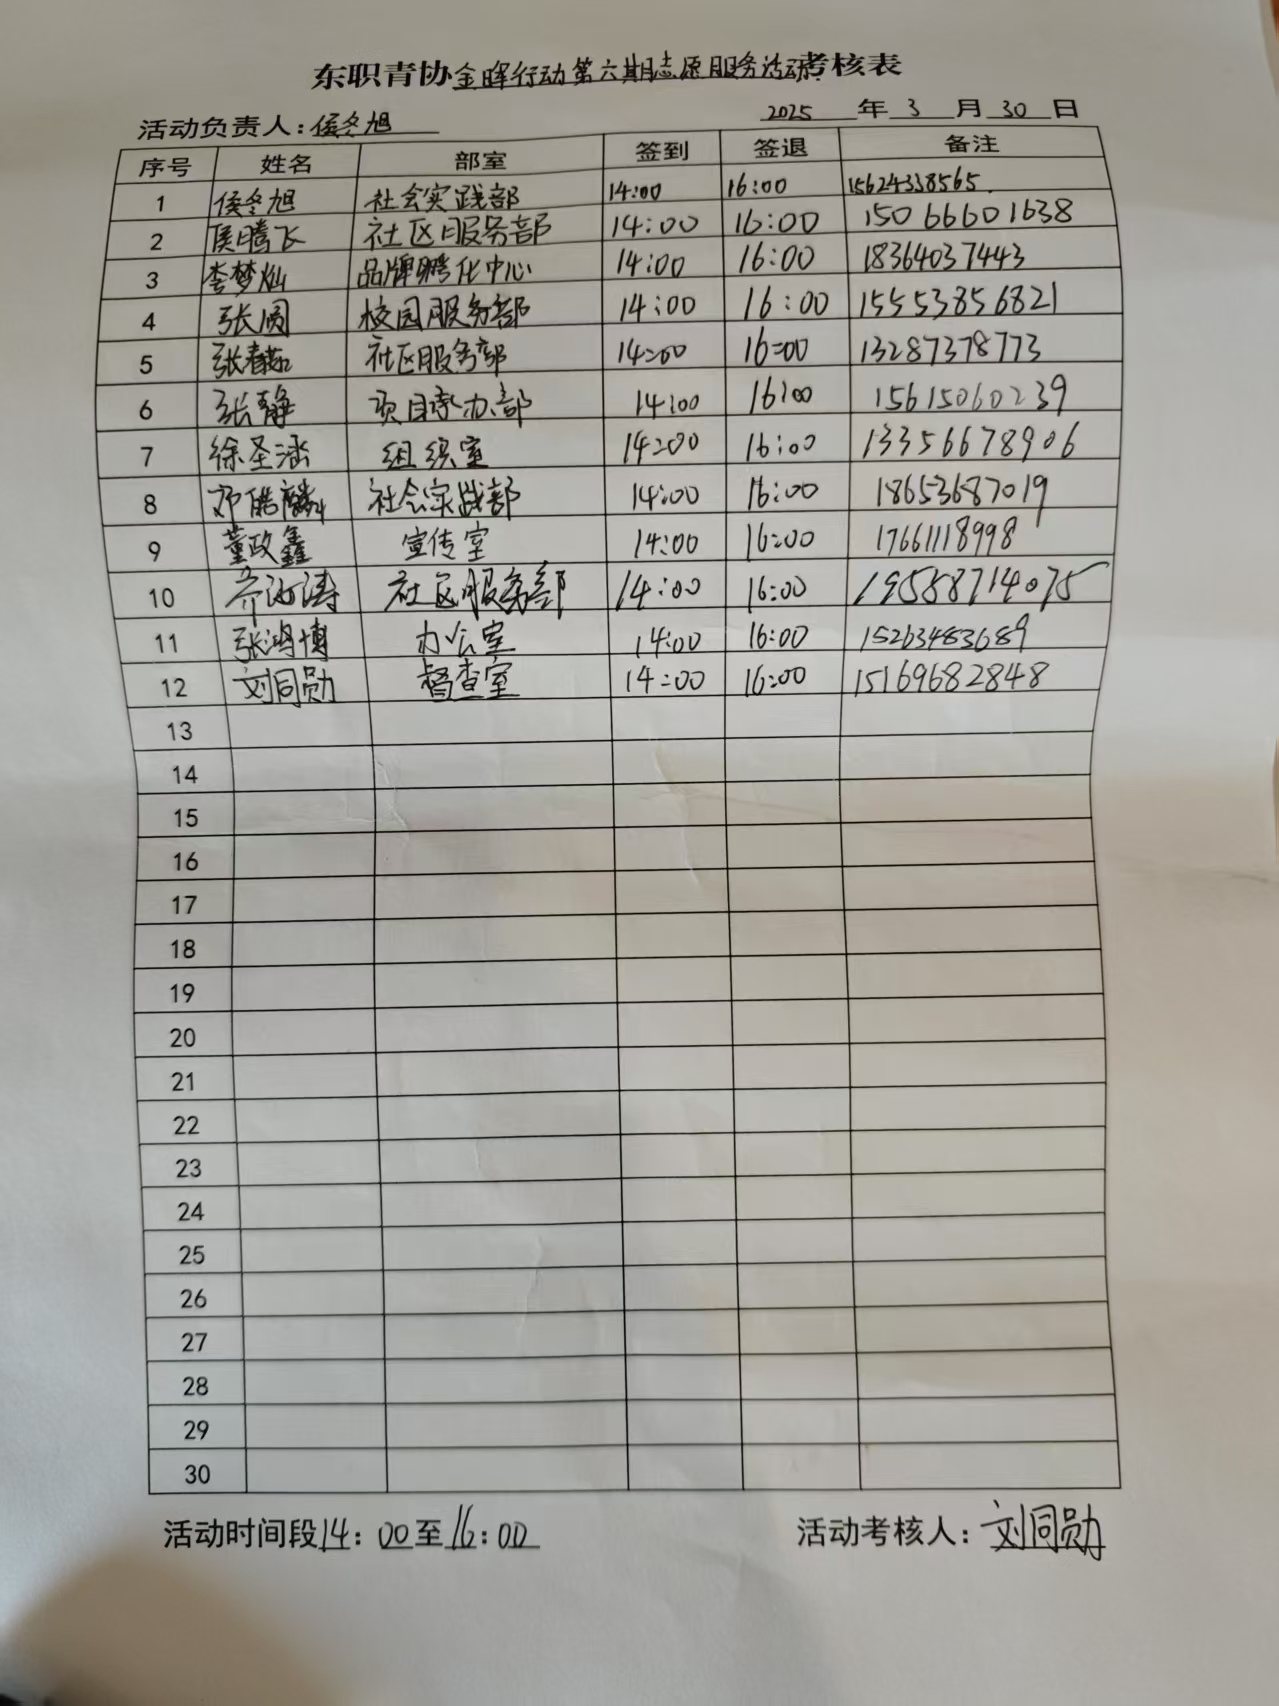 东职青协金晖行动第六期志愿服务活动考核表
活动负责人:侯冬旭 2025 年 3 月 30 日
序号 姓名 部室 签到 签退 备注
1 侯冬旭 社会实践部 14:00 16:00 15624338565.
2 侯腾飞 社区服务部 14:00 16:00 15066601638
3 李梦灿 品牌孵化中心 14:00 16:00 18364037443
4 张圆 校园服务部 14:00 16:00 15553856821
5 张春茹 社区服务部 14:00 16:00 13287378773
6 张静 项目承办部 14:00 16:00 15615060239
7 徐圣涵 组织室 14:00 16:00 13356678906
8 邓皓麟 社会实践部 14:00 16:00 18653687019
9 董政鑫 宣传室 14:00 16:00 17661118998
10 社区服务部 14:00 16:00 19558714075
11 张鸿博 办公室 14:00 16:00 15263483689
12 刘同勋 督查室 14:00 16:00 15169682848
13
14
15
16
17
18
19
20
21
22
23
24
25
26
27
28
29
30
活动时间段14:00至16:00 活动考核人:刘同勋